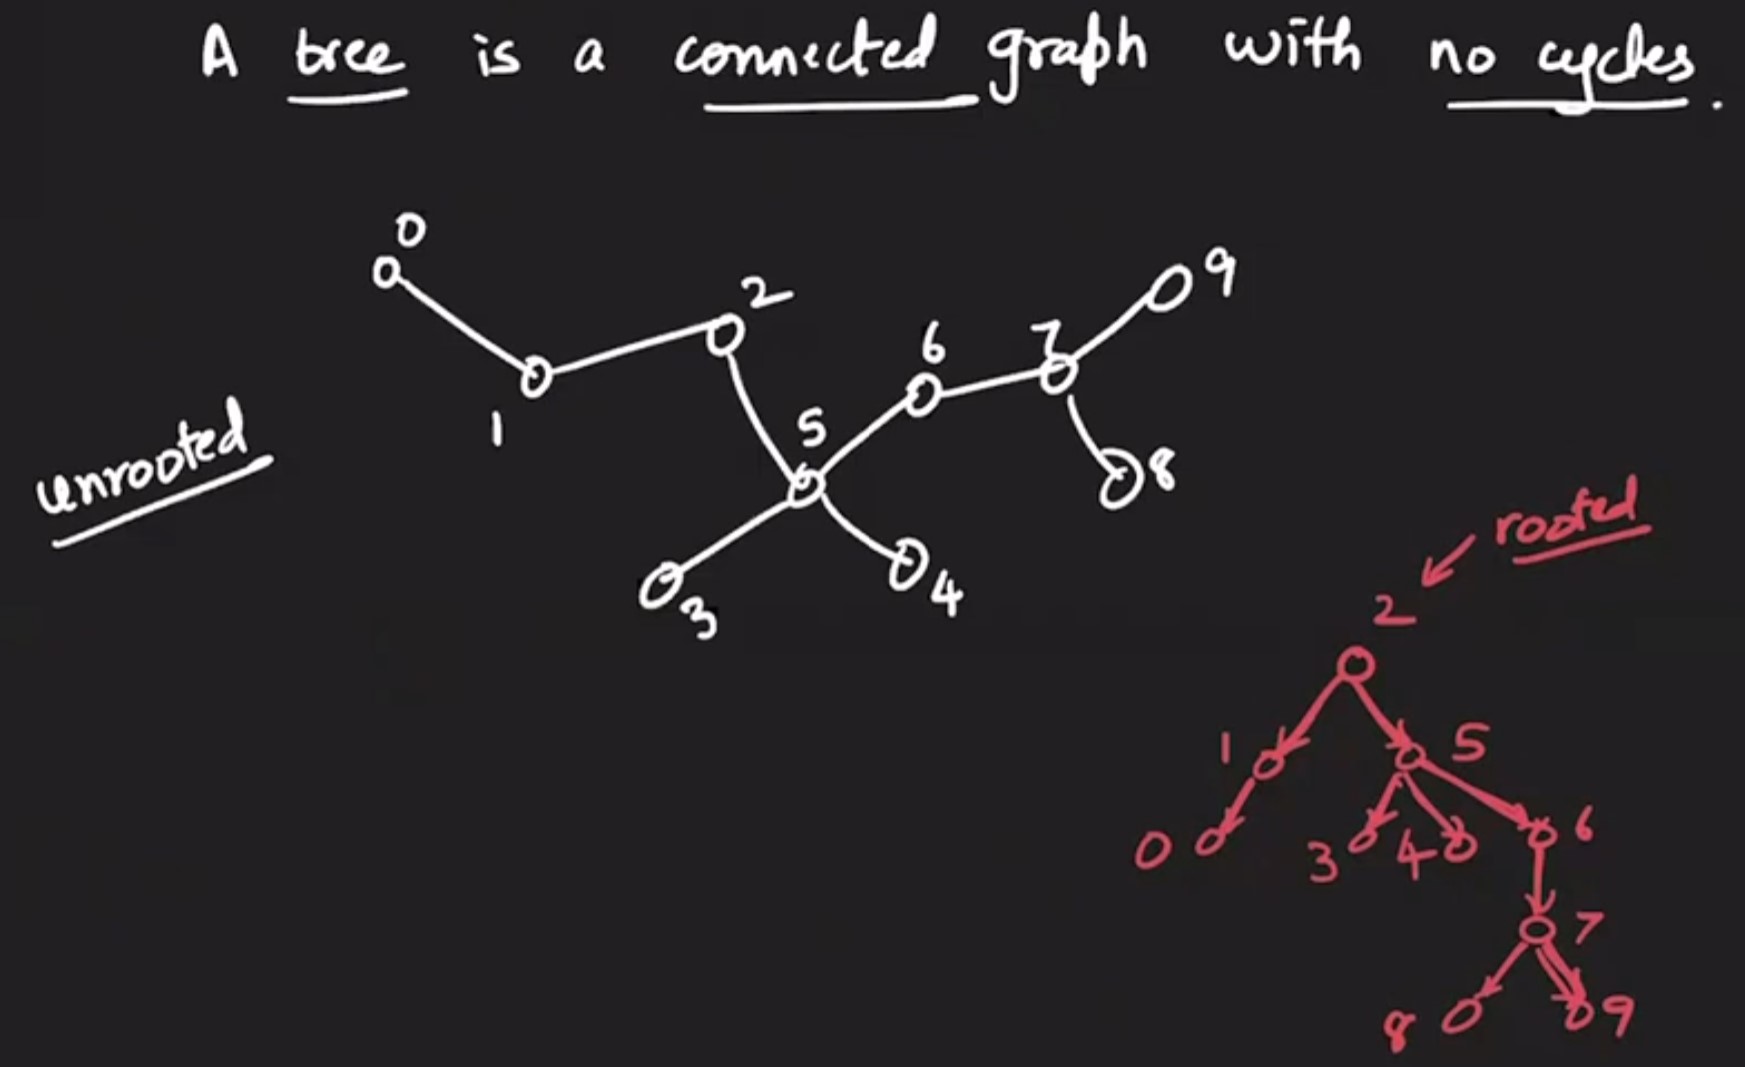 A tree is a connected graph with no cycles.
0
2
9
6
7
1
5
8
unrooted
3
4
rooted
2
1
5
0
3
4
6
7
8
9